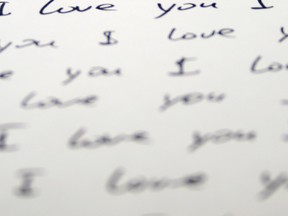 I love you I
you I love you
you I lov
love you
I love you
I love y